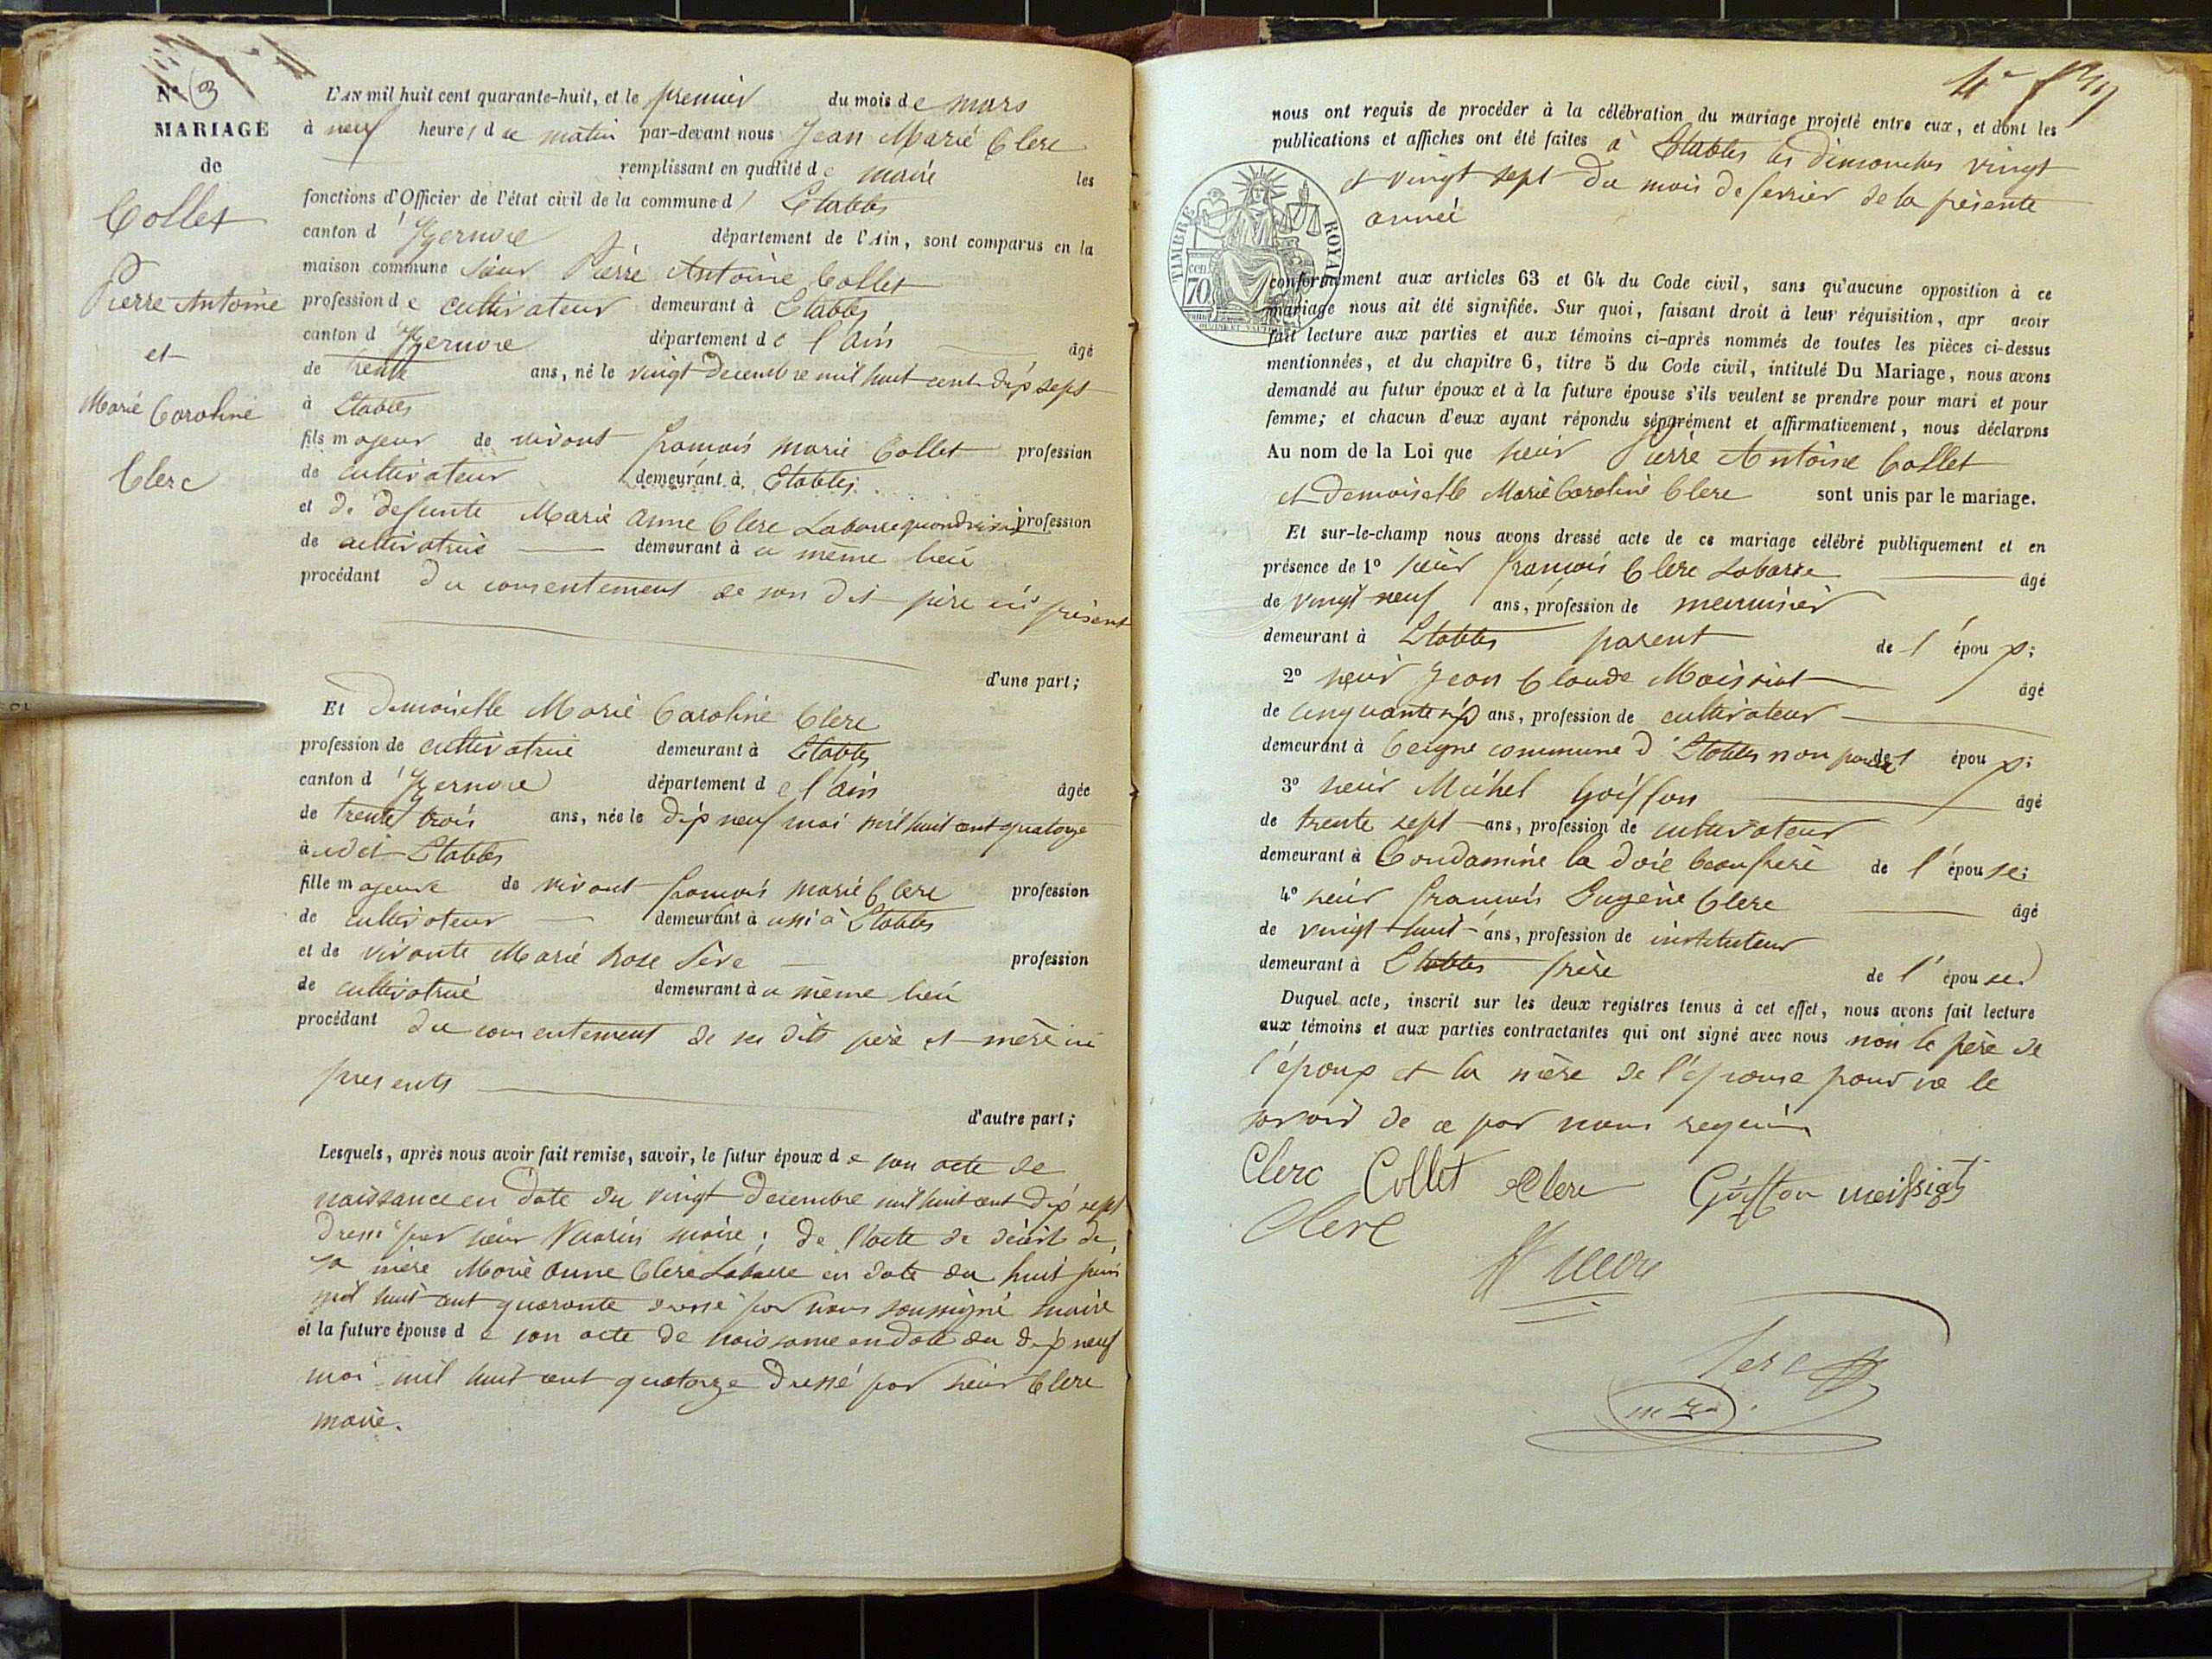 N° 3
MARIAGE
de
Collet
Pierre Antoine
et
Marie Caroline
Clerc
L'AN mil huit cent quarante-huit, et le premier du mois de mars
à neuf heures du matin par-devant nous Jean Marie Clerc
remplissant en qualité de maire les
fonctions d'Officier de l'état civil de la commune d' Etables
canton d' Yzernore département de l'Ain, sont comparus en la
maison commune sieur Pierre Antoine Collet
profession de cultivateur demeurant à Etables
canton d' Yzernore département de l'ain âgé
de trente ans, né le vingt decembre mil huit cent dix sept
à Etables
fils majeur de vivant francois marie Collet profession
de cultivateur demeurant à Etables
et de defunte Marie anne Clerc Labarre quand vivait profession
de cultivatrice demeurant à u même lieu
procédant du consentement de son dit père ici présent
d'une part;
Et Demoiselle Marie Caroline Clerc
profession de cultivatrice demeurant à Etables
canton d' Yzernore département de l'ain âgée
de trente trois ans, née le dix neuf mai mil huit cent quatorze
à udit Etables
fille majeure de vivant francois marie Clerc profession
de cultivateur demeurant à ussi à Etables
et de vivante Marie Rose Sève profession
de cultivatrice demeurant à u même lieu
procédant du consentement de ses dits père et mère ici
presents
d'autre part;
Lesquels, après nous avoir fait remise, savoir, le futur époux de son acte de
naissance en date du vingt decembre mil huit cent dix sept
dressé par sieur maire; de l'acte de décès de
sa mère Marie anne Clerc Labarre en date du huit juin
mil huit cent quarante dressé par nous soussigné maire
et la future épouse de son acte de naissance en date du dix neuf
mai mil huit cent quatorze dressé par sieur Clerc
maire.
nous ont requis de procéder à la célébration du mariage projeté entre eux, et dont les
publications et affiches ont été faites à Etables les dimanches vingt
et vingt sept du mois de fevrier de la présente
année
TIMBRE ROYAL
70 cen
conformément aux articles 63 et 64 du Code civil, sans qu'aucune opposition à ce
mariage nous ait été signifiée. Sur quoi, faisant droit à leur réquisition, apr avoir
fait lecture aux parties et aux témoins ci-après nommés de toutes les pièces ci-dessus
mentionnées, et du chapitre 6, titre 5 du Code civil, intitulé Du Mariage, nous avons
demandé au futur époux et à la future épouse s'ils veulent se prendre pour mari et pour
femme; et chacun d'eux ayant répondu séparément et affirmativement, nous déclarons
Au nom de la Loi que sieur Pierre Antoine Collet
et demoiselle Marie Caroline Clerc sont unis par le mariage.
Et sur-le-champ nous avons dressé acte de ce mariage célébré publiquement et en
présence de 1° sieur francois Clerc Labarre âgé
de vingt neuf ans, profession de menuisier
demeurant à Etables parent de l'époux;
2° sieur Jean Claude Moissiat âgé
de cinquante six ans, profession de cultivateur
demeurant à Ceigne commune d'Etables non parent de l'époux;
3° sieur Michel Goiffon âgé
de trente sept ans, profession de cultivateur
demeurant à Condamine la doie beaufrère de l'épouse;
4° sieur francois Eugène Clerc âgé
de vingt huit ans, profession de instituteur
demeurant à Etables frère de l'épouse
Duquel acte, inscrit sur les deux registres tenus à cet effet, nous avons fait lecture
aux témoins et aux parties contractantes qui ont signé avec nous non le père de
l'époux et la mère de l'épouse pour ne le
savoir de ce par nous requis
Clerc Collet Clerc Goiffon
Clerc